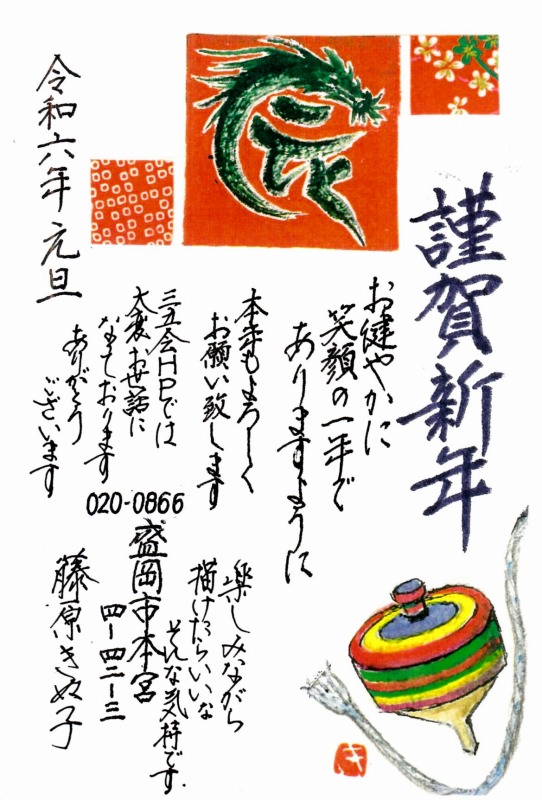 謹賀新年
お健やかに
笑顔の一年で
ありますように
本年もよろしく
お願い致します
三五会HPでは
大変お世話に
なっております
ありがとう
ございます
令和六年 元旦
楽しみながら
描けたらいいな
そんな気持です
020-0866
盛岡市本宮
四-四二-三
藤原きぬ子